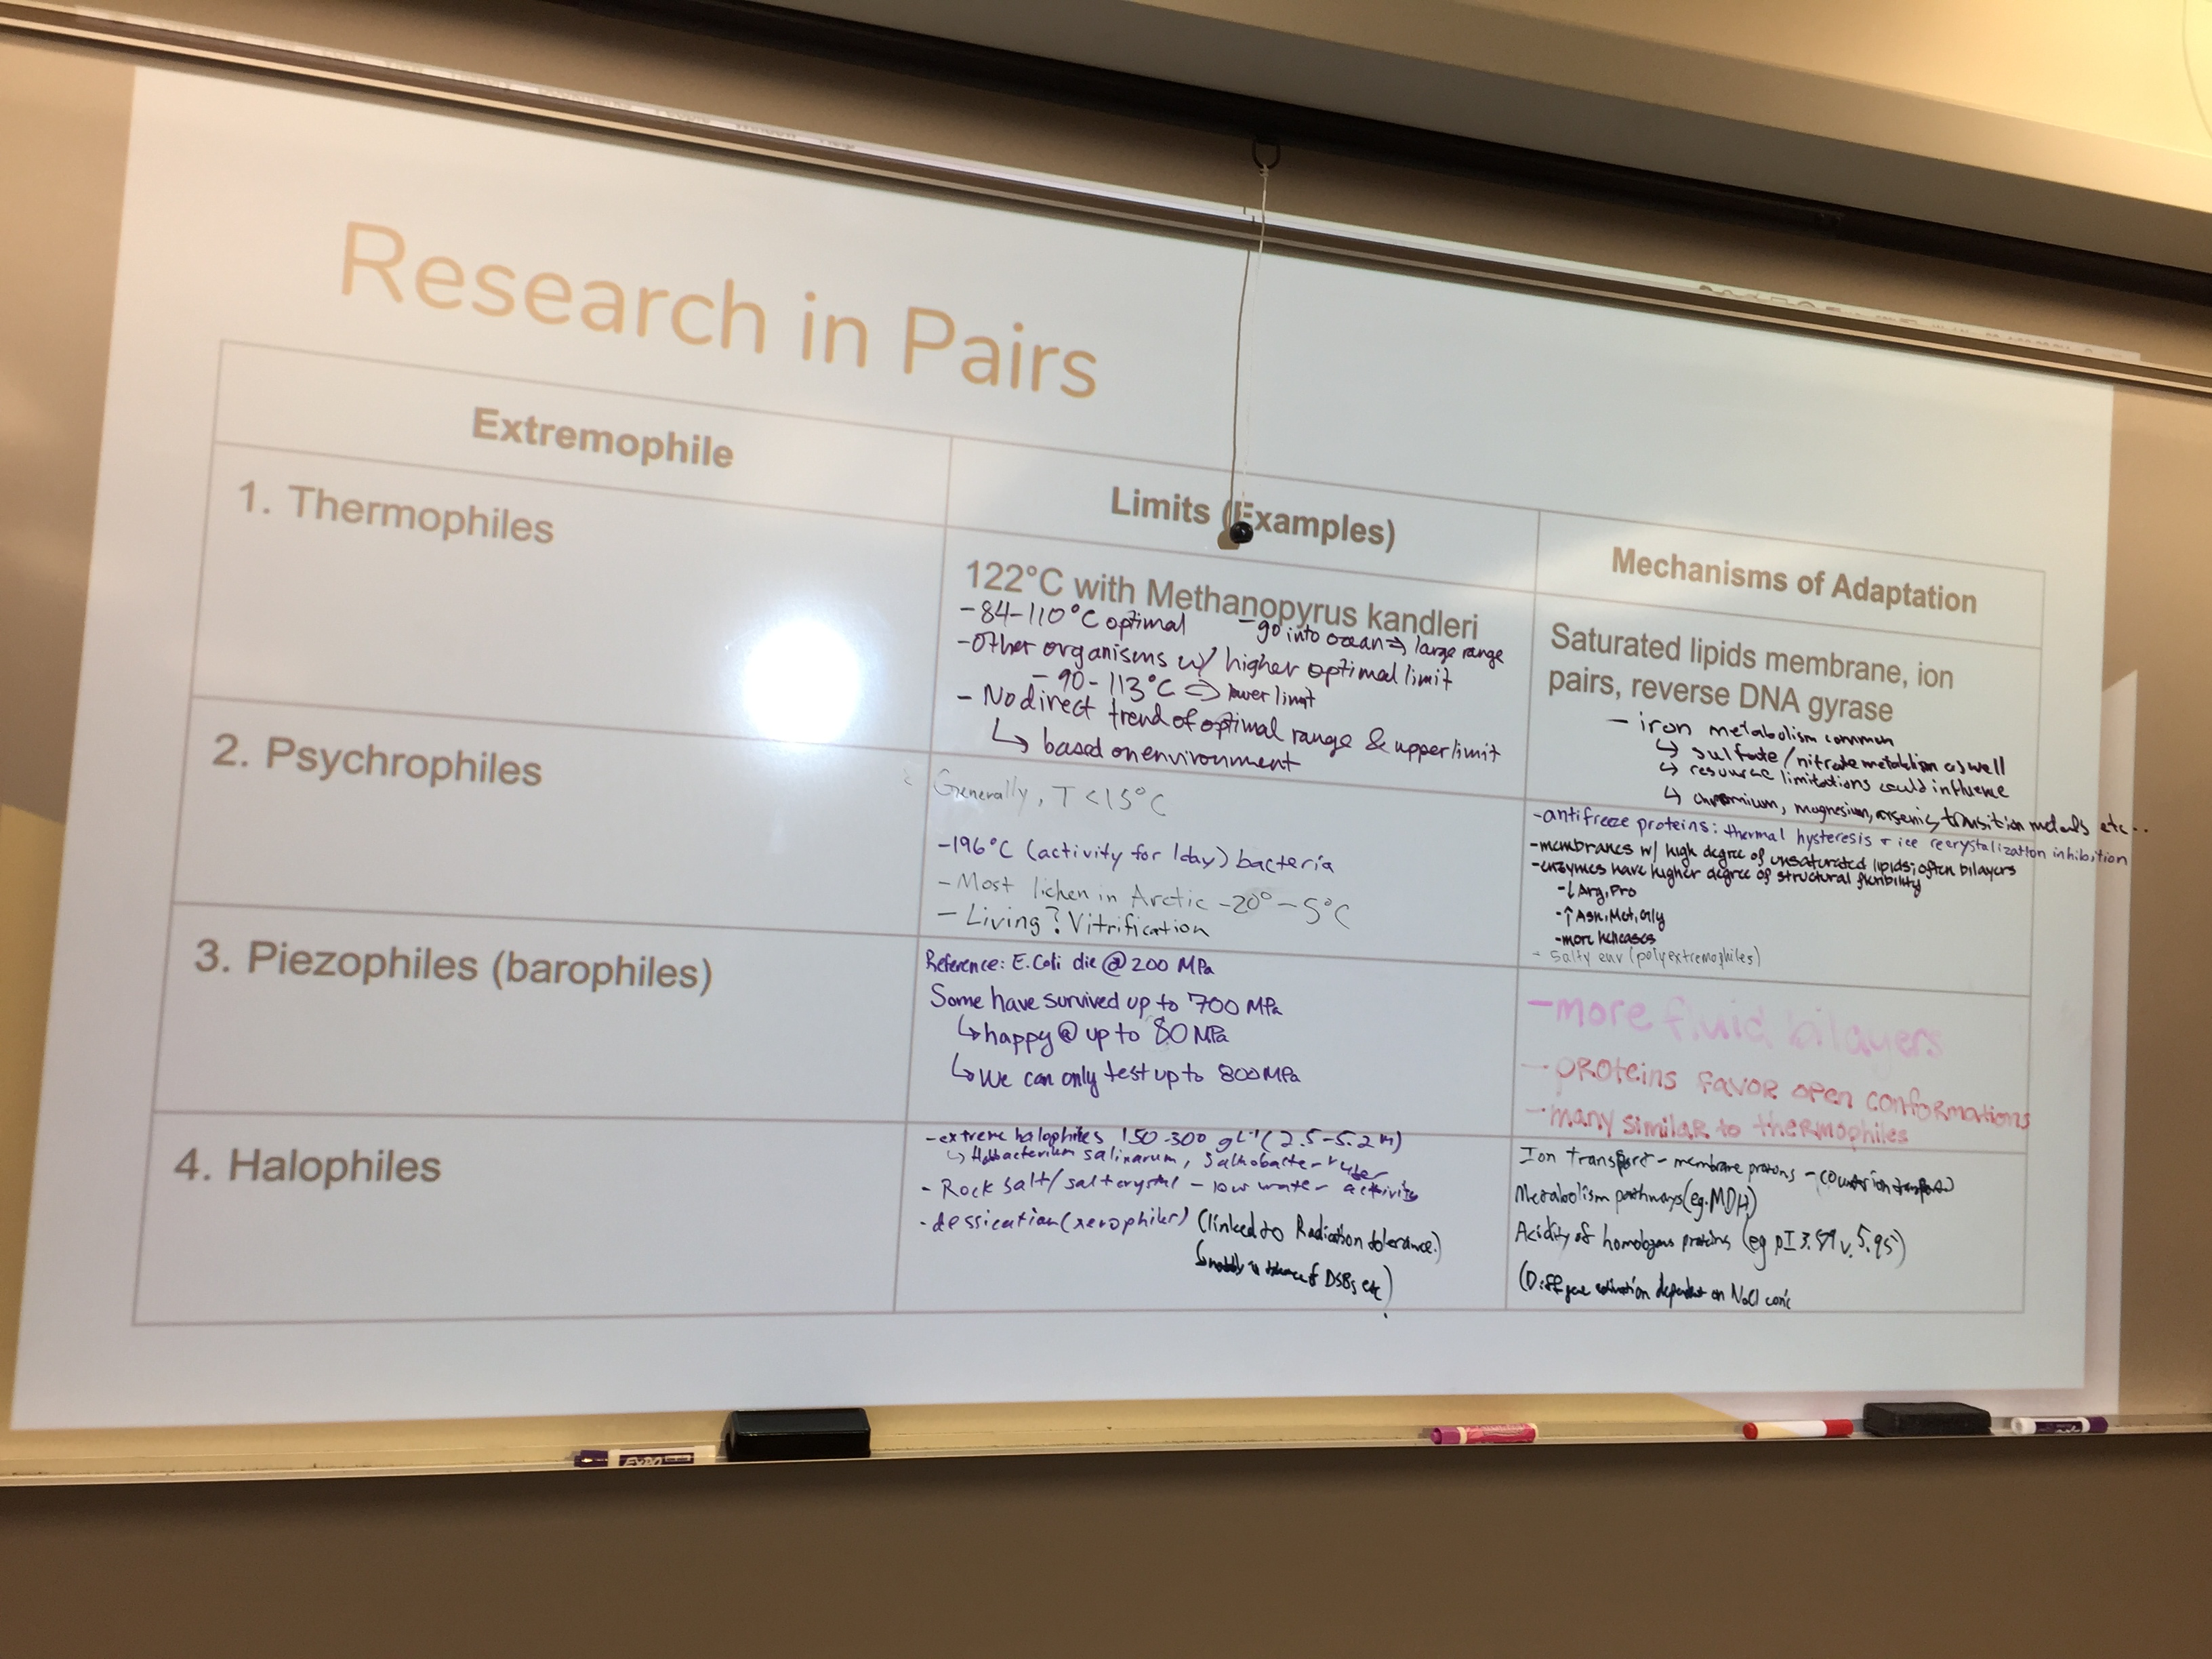 Research in Pairs
Extremophile
Limits (Examples)
Mechanisms of Adaptation
1. Thermophiles
122°C with Methanopyrus kandleri
- 84-110°C optimal - go into ocean ⇒ large range
- Other organisms w/ higher optimal limit
- 90-113°C ⇒ lower limit
- No direct trend of optimal range & upper limit
↳ based on environment
Saturated lipids membrane, ion
pairs, reverse DNA gyrase
- iron metabolism common
↳ sulfate/nitrate metabolism as well
↳ resource limitations could influence
↳ chromium, magnesium, arsenic, transition metals etc...
2. Psychrophiles
Generally, T <15°C
-196°C (activity for 1day) bacteria
- Most lichen in Arctic -20° - 5°C
- Living? Vitrification
- antifreeze proteins: thermal hysteresis + ice recrystalization inhibition
- membranes w/ high degree of unsaturated lipids; often bilayers
- enzymes have higher degree of structural flexibility
- ↓ Arg, Pro
- ↑ Asn, Met, Gly
- more helicases
- Salty env (polyextremophiles)
3. Piezophiles (barophiles)
Reference: E.Coli die @ 200 MPa
Some have survived up to 700 MPa
↳ happy @ up to 80 MPa
↳ We can only test up to 800 MPa
- more fluid bilayers
- proteins favor open conformations
- many similar to thermophiles
4. Halophiles
- extreme halophiles 150-300 gL⁻¹ (2.5-5.2 M)
↳ Halobacterium salinarum, Salinobacter ruber
- Rock salt/salt crystal - low water activity
- dessication (xerophiles) (linked to Radiation tolerance.)
DSBs etc)
Ion transport - membrane protons - counter ion transport
Metabolism pathways (eg. MDH)
Acidity of homologous proteins (eg pI 3. v. 5.95)
(Diff gene activation dependent on NaCl conc
EXPO